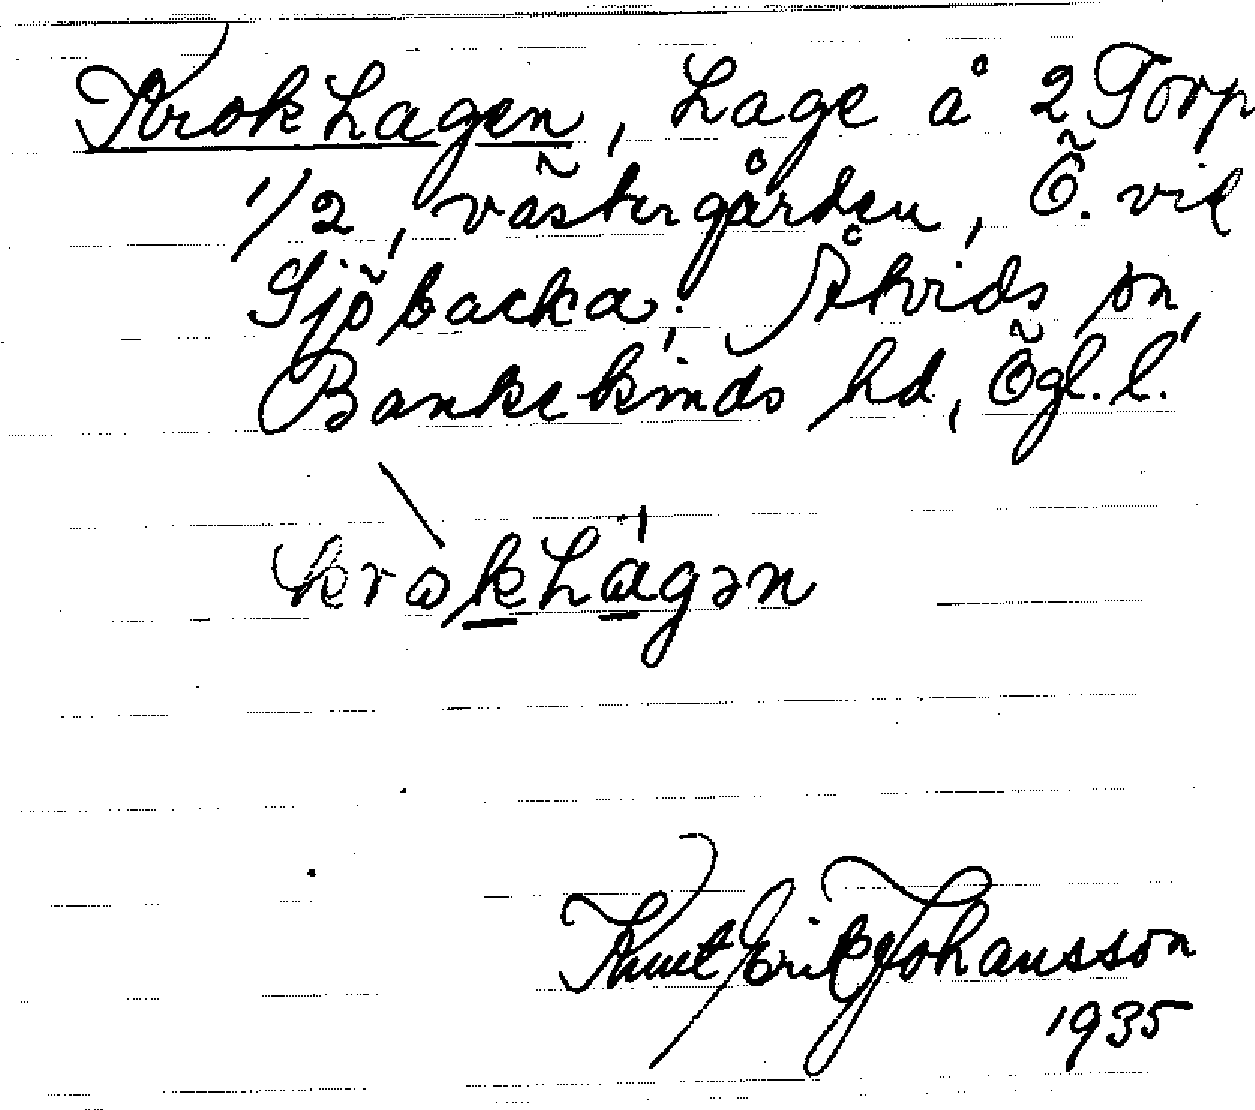 Krokhagen, hage å 2 Torp
1/2, västergården, Ö. vid
Sjöbacka; Åtvids sn,
Bankekinds hd, Ögl. l.
krɷkhágən
Knut Erik Johansson
1935